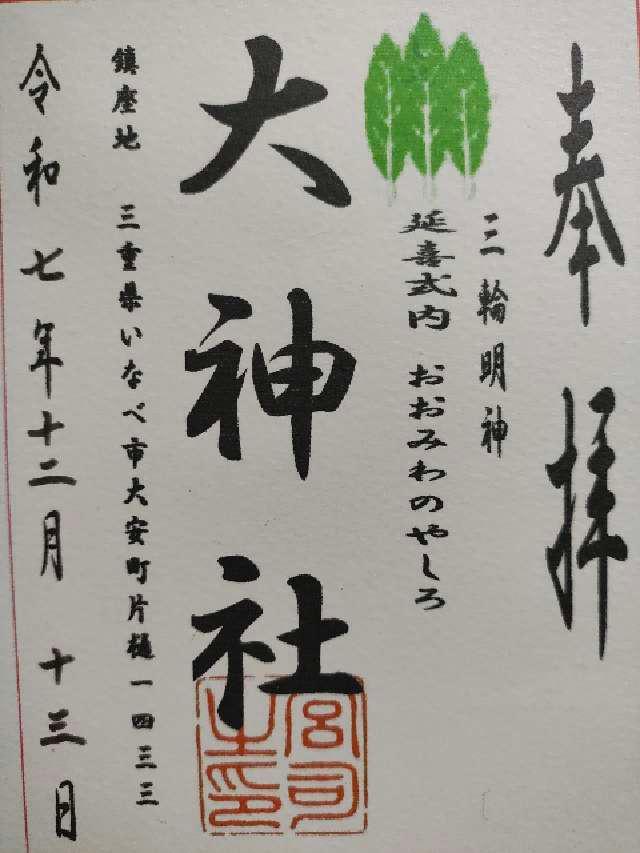 奉拝
三輪明神
延喜式内 おおみわのやしろ
大神社
宮司之印
鎮座地 三重県いなべ市大安町片樋一四三三
令和七年十二月 十三日